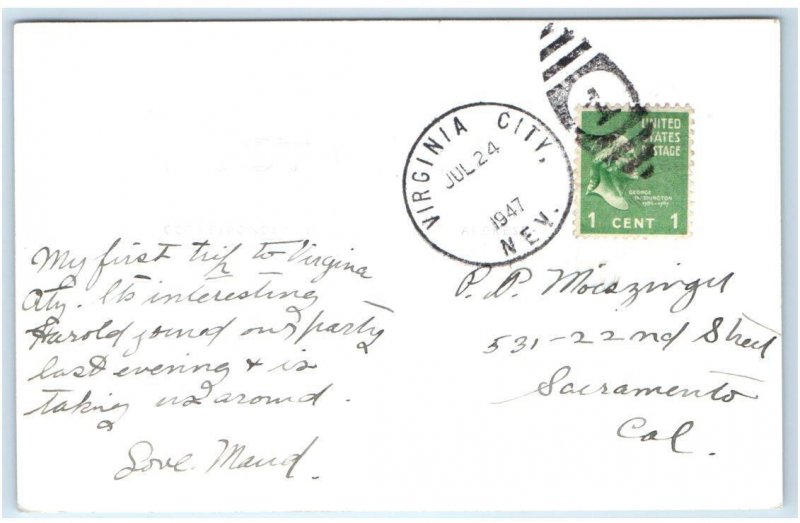 VIRGINIA CITY, NEV.
JUL 24
1947
UNITED
STATES
POSTAGE
GEORGE
WASHINGTON
1 CENT 1
My first trip to Virgina
City. Its interesting
Harold joined our party
last evening & is
taking us around.
Love. Maud.
P. P.
531-22nd Street
Sacramento
Cal.